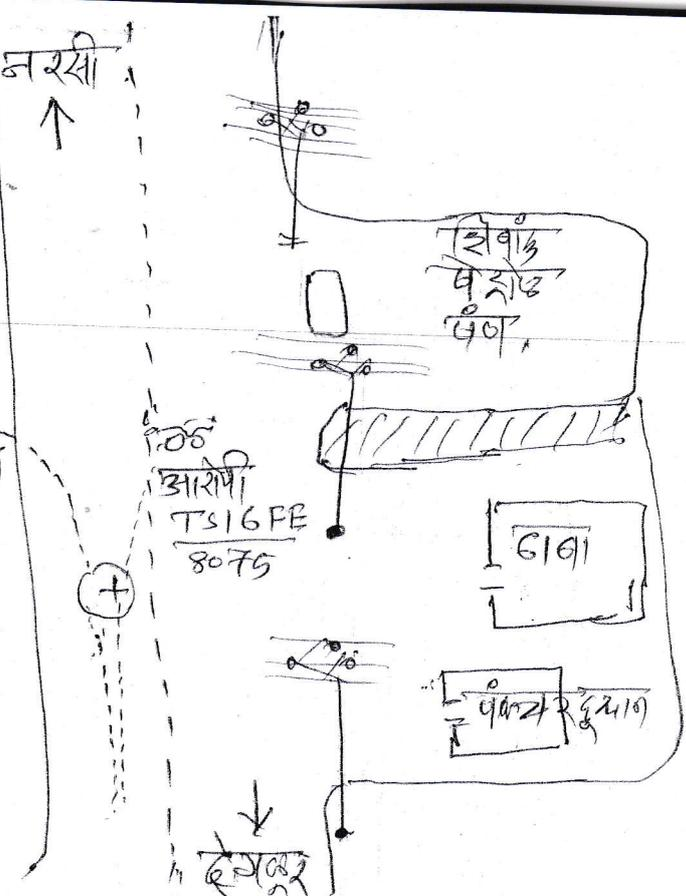 नरसी
पेट्रोल
पंप
आरोपी
TS16FE
8075
ढाबा
पंक्चर दुकान
देगलूर